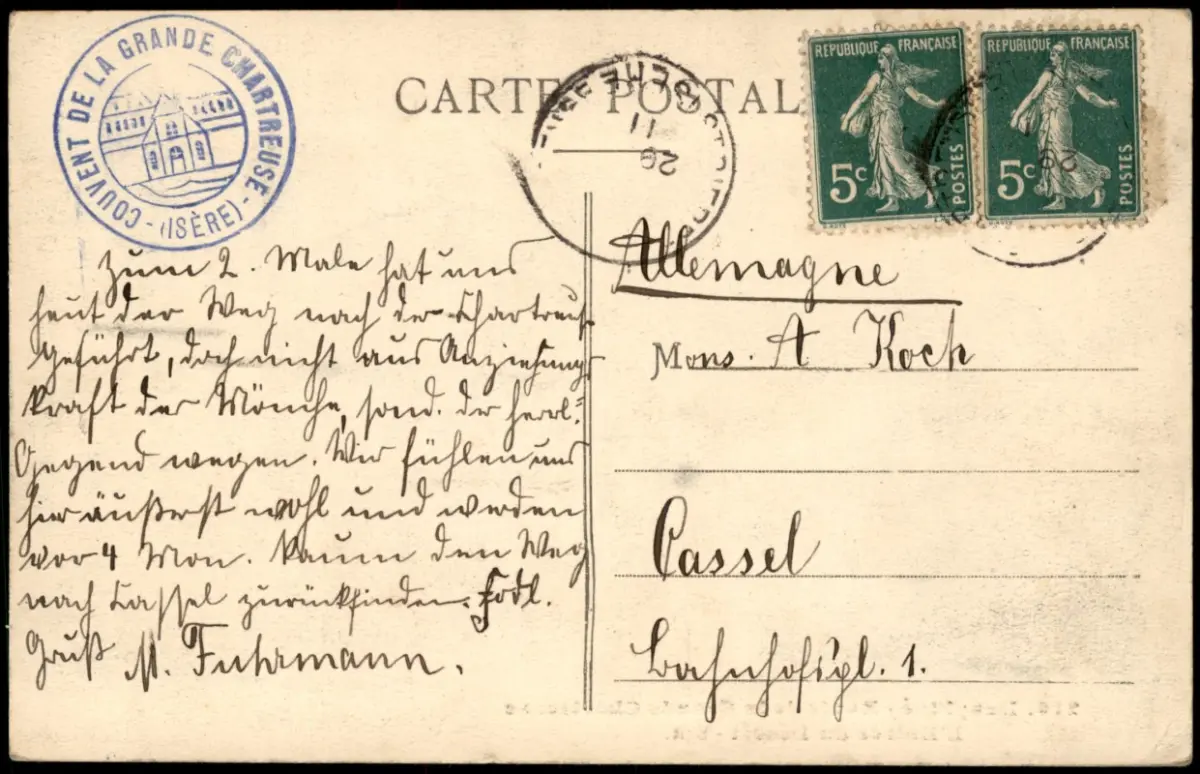 COUVENT DE LA GRANDE CHARTREUSE
-(ISÈRE)-
CARTE POSTALE
REPUBLIQUE FRANÇAISE
5c POSTES
REPUBLIQUE FRANÇAISE
5c POSTES
11
26
Zum 2. Male hat uns
heut der Weg nach der Chartreuse
geführt, doch nicht aus Anziehungs
kraft der Mönche, sond. der herrl.
Gegend wegen. Wir fühlen uns
hier äußerst wohl und werden
vor 4 Mon. kaum den Weg
nach Cassel zurückfinden. Frdl.
Gruß M. Fuhrmann.
Allemagne
Mons. A Koch
Cassel
Bahnhofspl. 1.